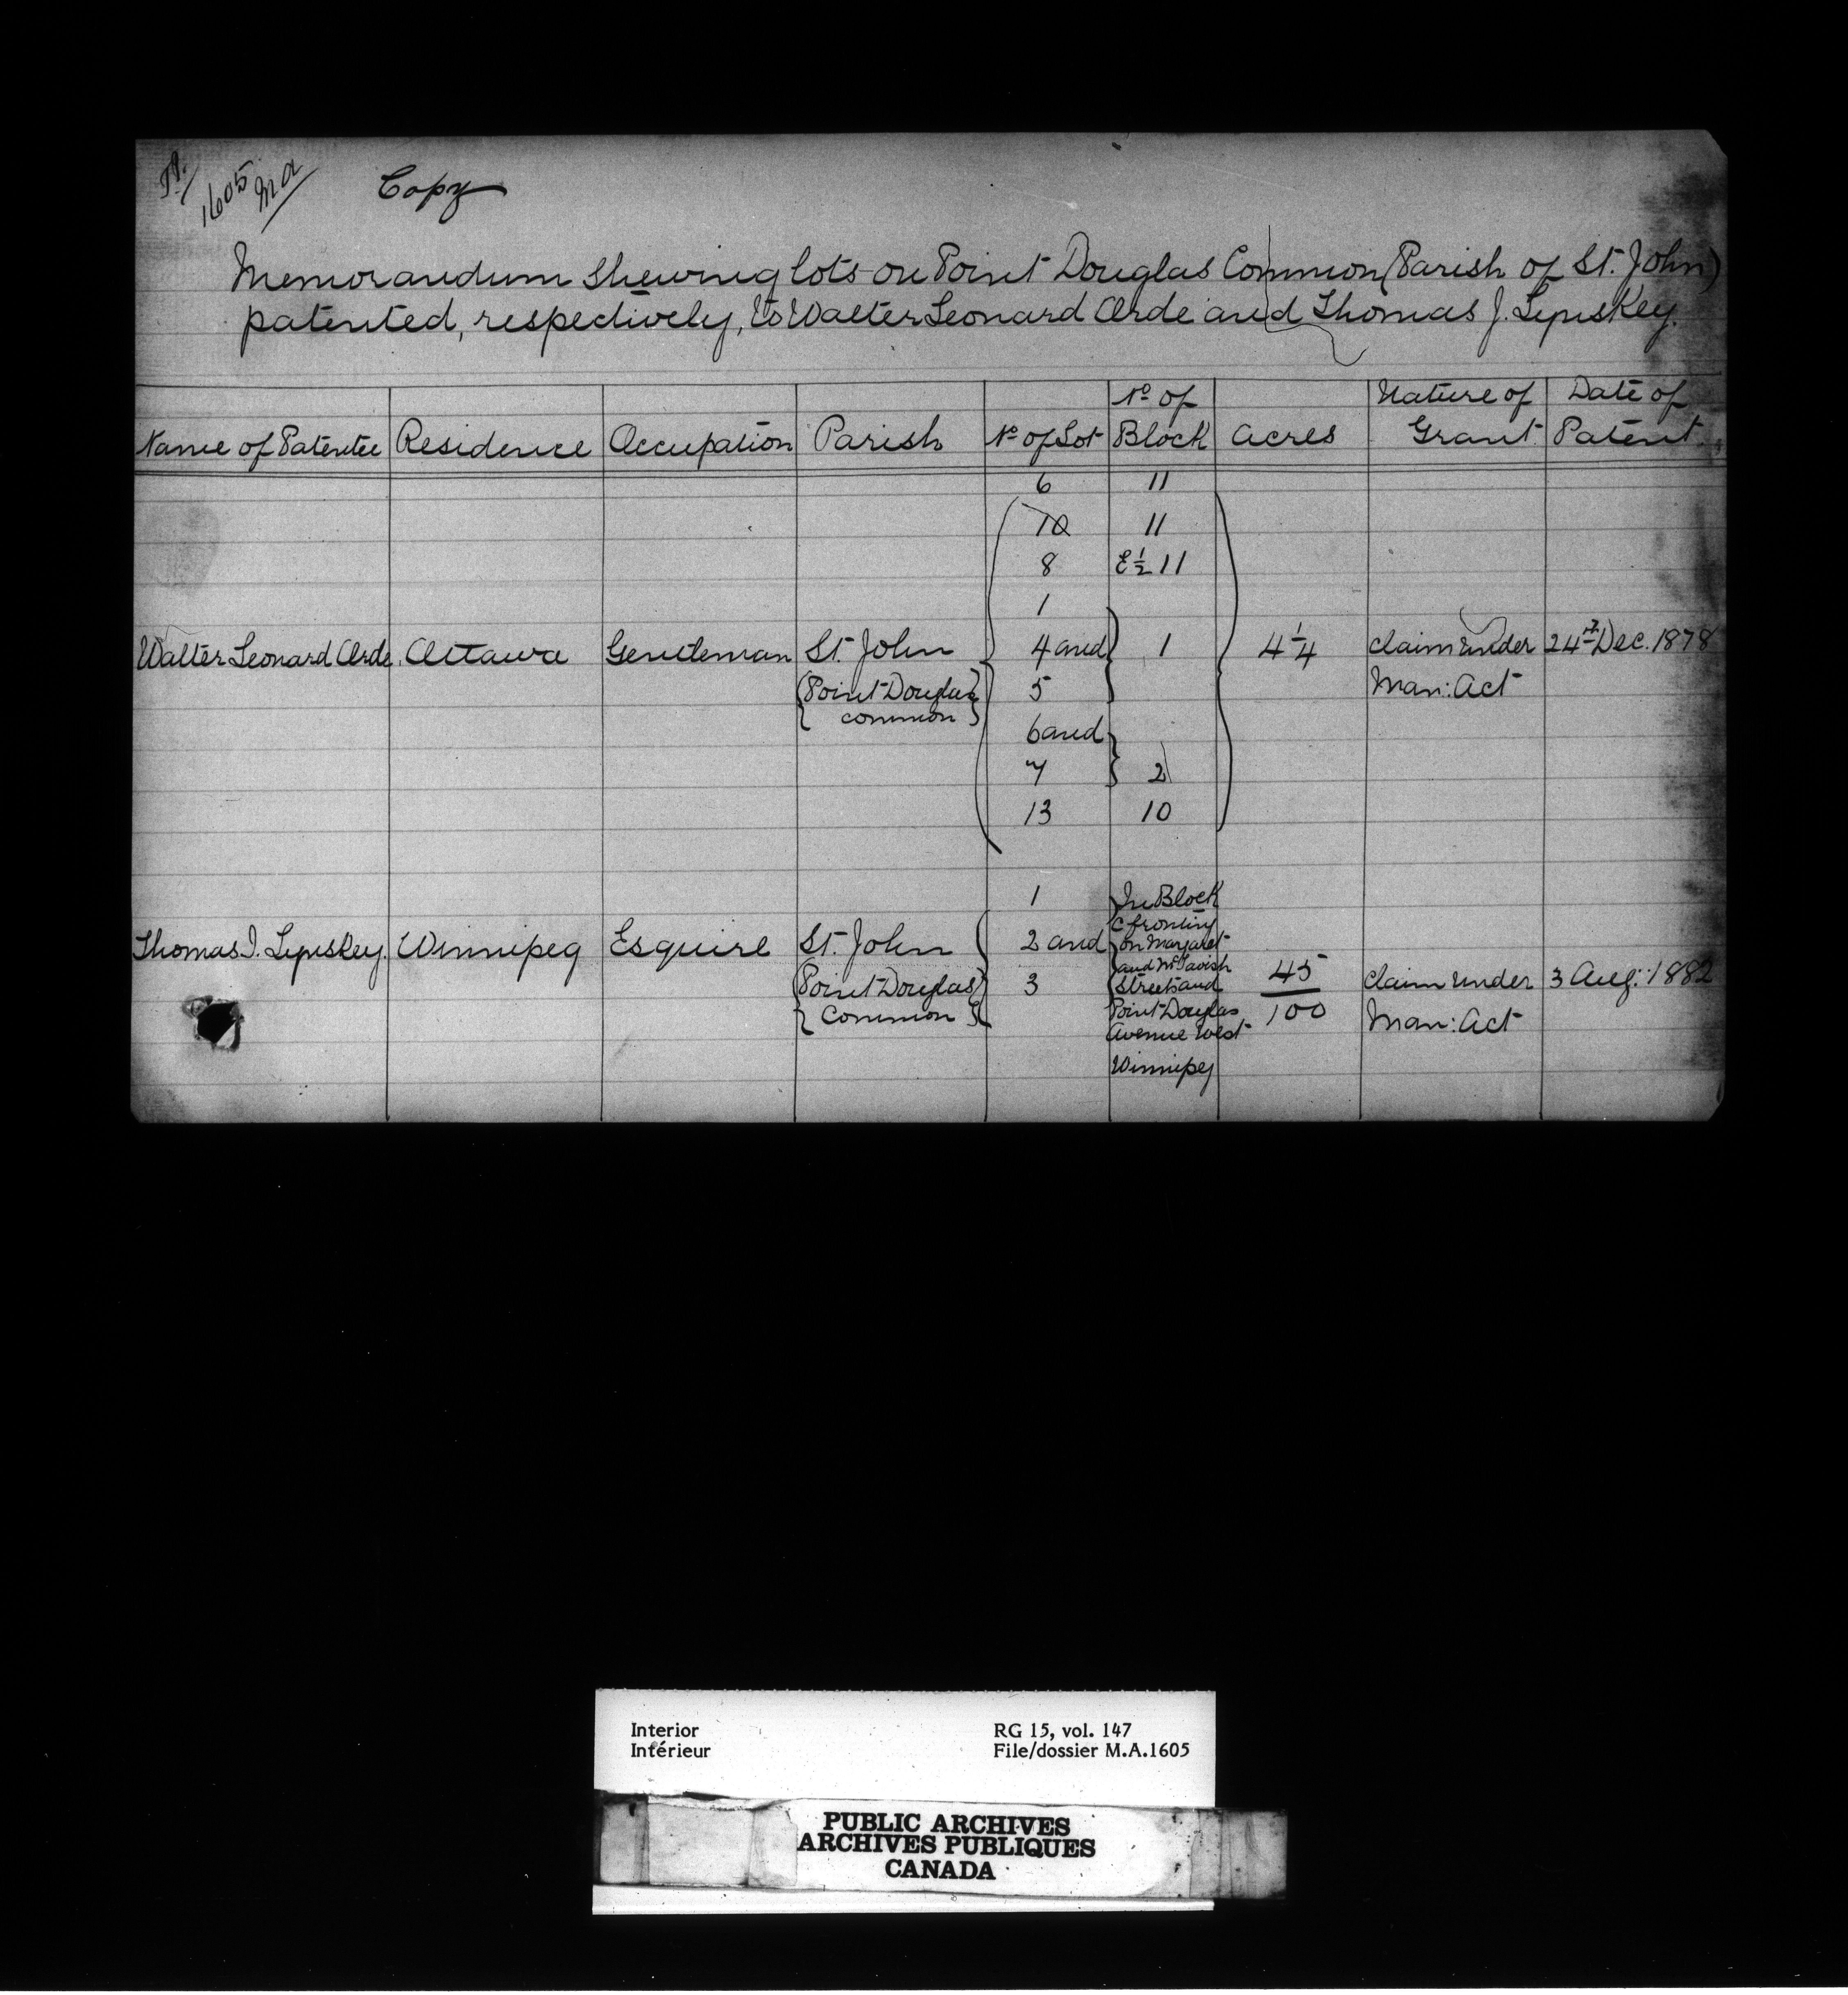 1605
M A
Copy
Memorandum Shewing lots on Point Douglas Common (Parish of St. John)
patented, respectively, to Walter Leonard Orde and Thomas J. Lynskey.
Name of Patentee Residence Occupation Parish No of Lot No of Block Acres Nature of Grant Date of Patent.
6 11
10 11
8 E 1/2 11
1
Walter Leonard Orde, Ottawa Gentleman St. John 4 and 1 4 1/4 Claim under 24th Dec. 1878
(Point Douglas 5 Man: Act
common)
6 and
7 2
13 10
1 In Block
C fronting
Thomas J. Lynskey. Winnipeg Esquire St. John 2 and on Margaret
and McTavish
(Point Douglas 3 Streets and 45/100 Claim under 3 Aug: 1882
Common) Point Douglas Man: Act
Avenue West
Winnipeg
Interior RG 15, vol. 147
Intérieur File/dossier M.A.1605
PUBLIC ARCHIVES
ARCHIVES PUBLIQUES
CANADA